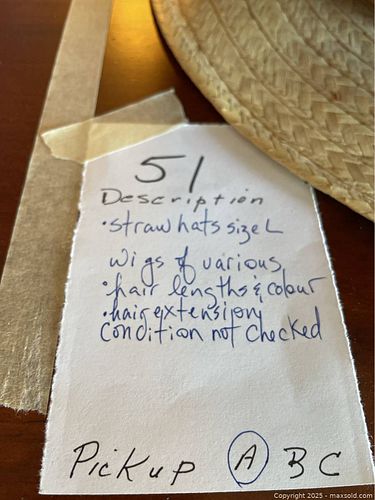 51
Description
• straw hats size L
wigs of various
• hair lengths & colour
• hair extension
condition not checked
Pickup A B C
Copyright 2025 - maxsold.com